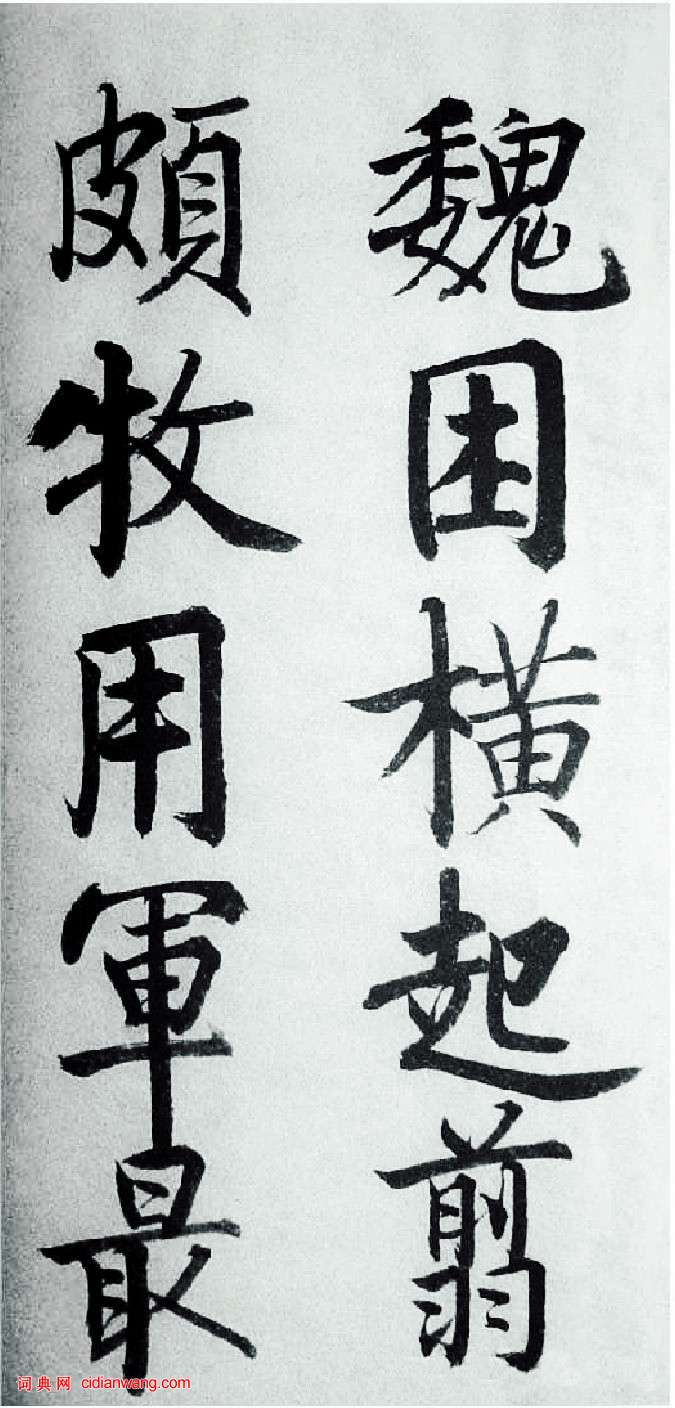 魏困橫起翦
頗牧用軍最
词典网 cidianwang.com